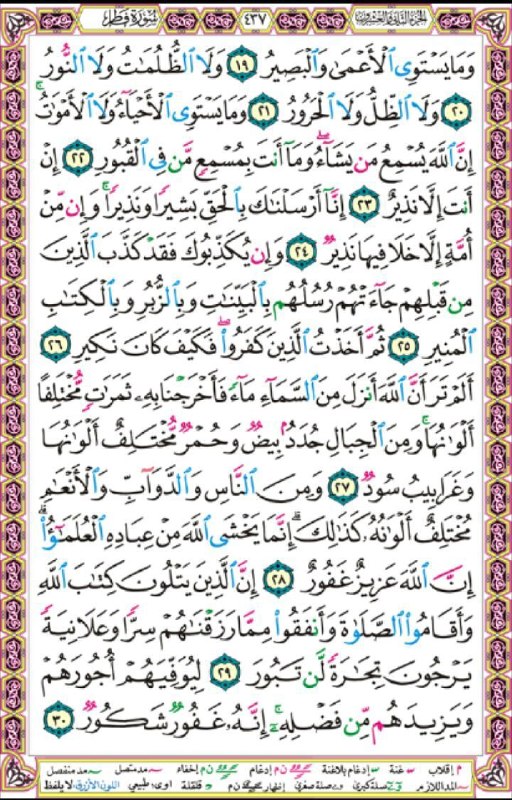 سُورَةُ فَاطِرٍ ٤٣٧ الجزء الثاني والعشرون
وَمَا يَسْتَوِي الْأَعْمَىٰ وَالْبَصِيرُ ١٩ وَلَا الظُّلُمَاتُ وَلَا النُّورُ
٢٠ وَلَا الظِّلُّ وَلَا الْحَرُورُ ٢١ وَمَا يَسْتَوِي الْأَحْيَاءُ وَلَا الْأَمْوَاتُ
إِنَّ اللَّهَ يُسْمِعُ مَن يَشَاءُ ۖ وَمَا أَنتَ بِمُسْمِعٍ مَّن فِي الْقُبُورِ ٢٢ إِنْ
أَنتَ إِلَّا نَذِيرٌ ٢٣ إِنَّا أَرْسَلْنَاكَ بِالْحَقِّ بَشِيرًا وَنَذِيرًا ۚ وَإِن مِّنْ
أُمَّةٍ إِلَّا خَلَا فِيهَا نَذِيرٌ ٢٤ وَإِن يُكَذِّبُوكَ فَقَدْ كَذَّبَ الَّذِينَ
مِن قَبْلِهِمْ جَاءَتْهُمْ رُسُلُهُم بِالْبَيِّنَاتِ وَبِالزُّبُرِ وَبِالْكِتَابِ
الْمُنِيرِ ٢٥ ثُمَّ أَخَذْتُ الَّذِينَ كَفَرُوا ۖ فَكَيْفَ كَانَ نَكِيرِ ٢٦
أَلَمْ تَرَ أَنَّ اللَّهَ أَنزَلَ مِنَ السَّمَاءِ مَاءً فَأَخْرَجْنَا بِهِ ثَمَرَاتٍ مُّخْتَلِفًا
أَلْوَانُهَا ۚ وَمِنَ الْجِبَالِ جُدَدٌ بِيضٌ وَحُمْرٌ مُّخْتَلِفٌ أَلْوَانُهَا
وَغَرَابِيبُ سُودٌ ٢٧ وَمِنَ النَّاسِ وَالدَّوَابِّ وَالْأَنْعَامِ
مُخْتَلِفٌ أَلْوَانُهُ كَذَٰلِكَ ۗ إِنَّمَا يَخْشَى اللَّهَ مِنْ عِبَادِهِ الْعُلَمَاؤُا ۗ
إِنَّ اللَّهَ عَزِيزٌ غَفُورٌ ٢٨ إِنَّ الَّذِينَ يَتْلُونَ كِتَابَ اللَّهِ
وَأَقَامُوا الصَّلَوٰةَ وَأَنفَقُوا مِمَّا رَزَقْنَاهُمْ سِرًّا وَعَلَانِيَةً
يَرْجُونَ تِجَارَةً لَّن تَبُورَ ٢٩ لِيُوَفِّيَهُمْ أُجُورَهُمْ
وَيَزِيدَهُم مِّن فَضْلِهِ ۚ إِنَّهُ غَفُورٌ شَكُورٌ ٣٠
م إقلاب غنة إدغام بلاغنة ن م إدغام ن م إخفاء مد متصل مد منفصل
المد اللازم صلة كبرى صلة صغرى إظهار ن م قلقلة اوى طبيعي اللون الأزرق لا يلفظ